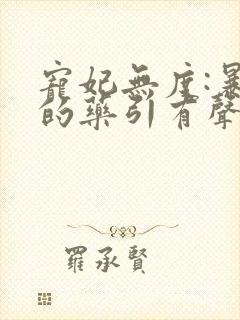 寵妃無度:暴
的藥引有聲
羅承賢